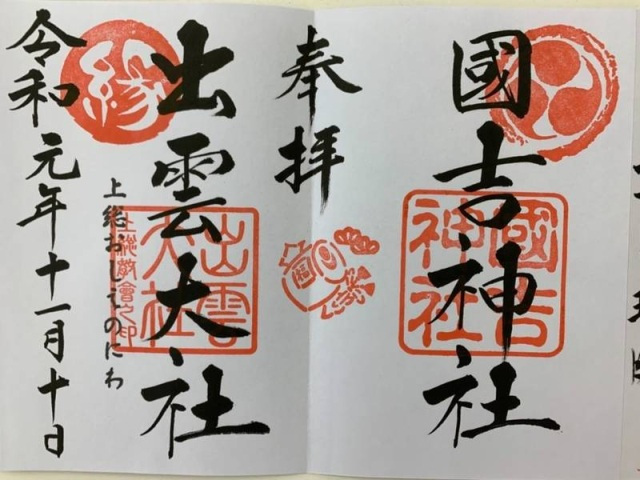 國吉神社
國吉神社
奉拝
出雲大社
出雲大社
上総教會之印
縁
上総おしどりのにわ
令和元年十一月十日